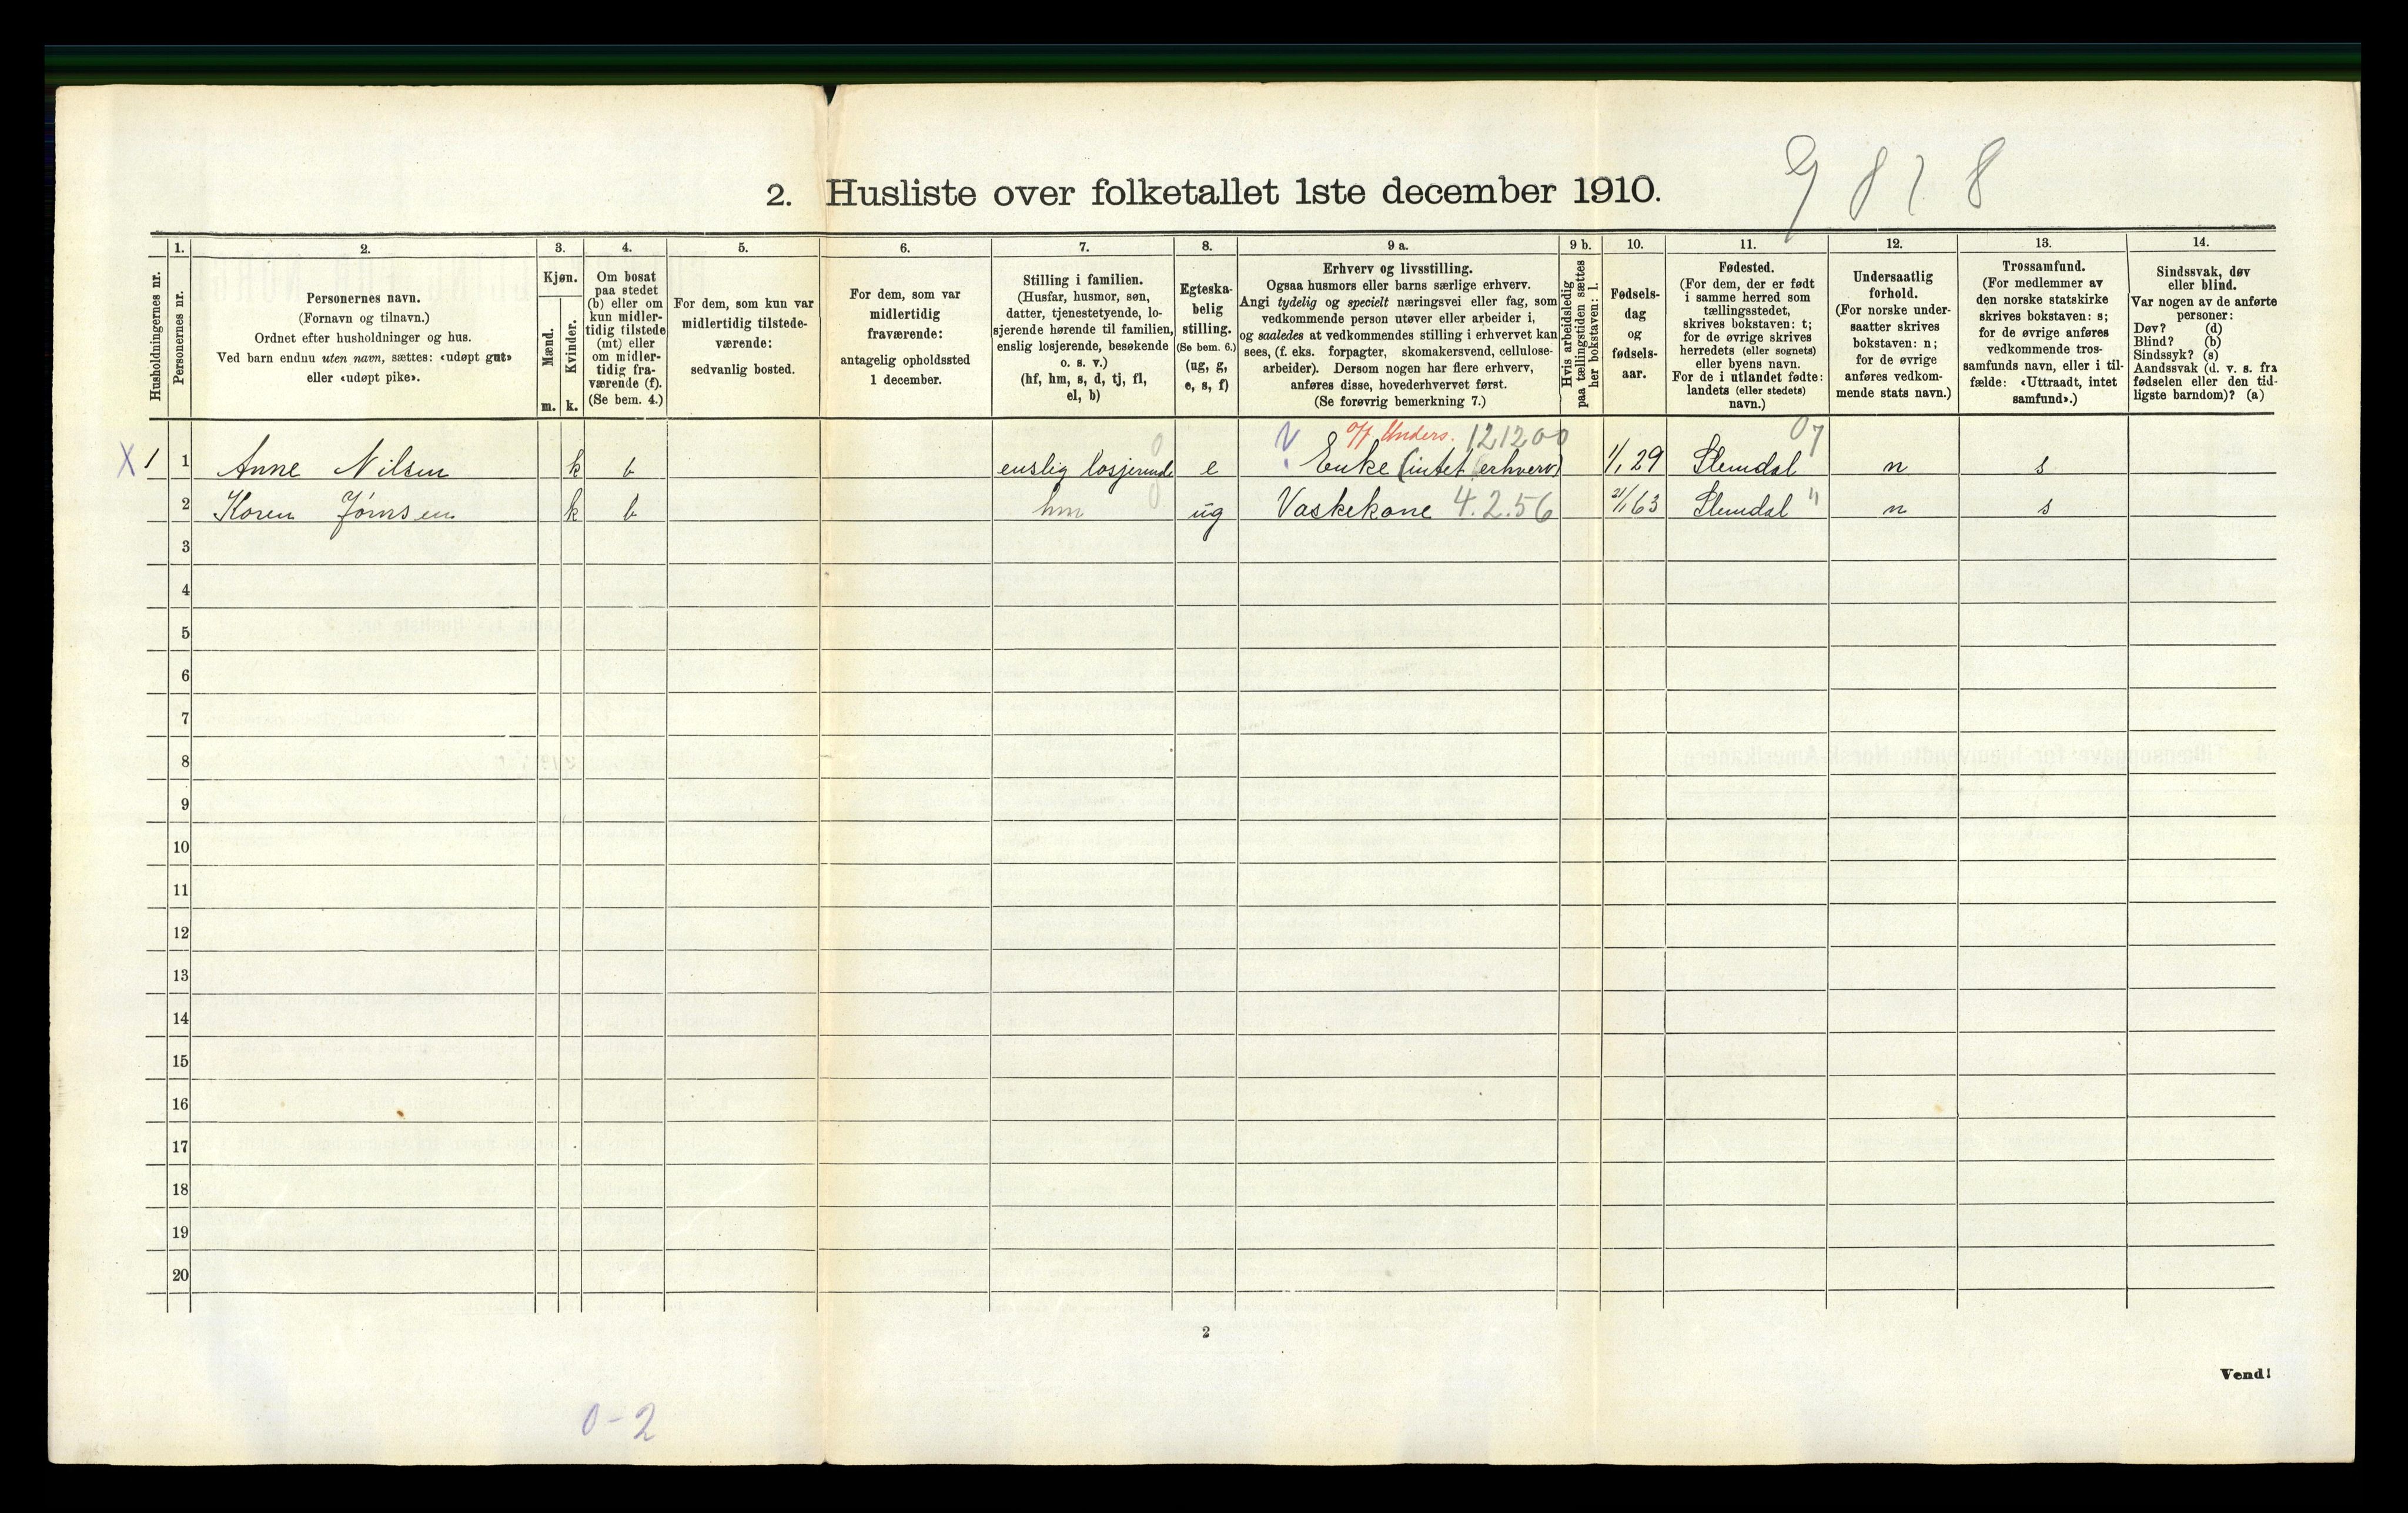 2. Husliste over folketallet 1ste december 1910.
9 8 2 8
Husholdningernes nr.
1.
Personernes nr.
2.
Personernes navn.
(Fornavn og tilnavn.)
Ordnet efter husholdninger og hus.
Ved barn endnu uten navn, sættes: «udøpt gut»
eller «udøpt pike».
3.
Kjøn.
Mænd.
m.
Kvinder.
k.
4.
Om bosat
paa stedet
(b) eller om
kun midler-
tidig tilstede
(mt) eller
om midler-
tidig fra-
værende (f).
(Se bem. 4.)
5.
For dem, som kun var
midlertidig tilstede-
værende:
sedvanlig bosted.
6.
For dem, som var
midlertidig
fraværende:
antagelig opholdssted
1 december.
7.
Stilling i familien.
(Husfar, husmor, søn,
datter, tjenestetyende, lo-
sjerende hørende til familien,
enslig losjerende, besøkende
o. s. v.)
(hf, hm, s, d, tj, fl,
el, b)
8.
Egteska-
belig
stilling.
(Se bem. 6.)
(ug, g,
e, s, f)
9 a.
Erhverv og livsstilling.
Ogsaa husmors eller barns særlige erhverv.
Angi tydelig og specielt næringsvei eller fag, som
vedkommende person utøver eller arbeider i,
og saaledes at vedkommendes stilling i erhvervet kan
sees, (f. eks. forpagter, skomakersvend, cellulose-
arbeider). Dersom nogen har flere erhverv,
anføres disse, hovederhvervet først.
(Se forøvrig bemerkning 7.)
9 b.
Hvis arbeidsledig
paa tællingstiden sættes
her bokstaven: l.
10.
Fødsels-
dag
og
fødsels-
aar.
11.
Fødested.
(For dem, der er født
i samme herred som
tællingsstedet,
skrives bokstaven: t;
for de øvrige skrives
herredets (eller sognets)
eller byens navn.
For de i utlandet fødte:
landets (eller stedets)
navn.)
12.
Undersaatlig
forhold.
(For norske under-
saatter skrives
bokstaven: n;
for de øvrige
anføres vedkom-
mende stats navn.)
13.
Trossamfund.
(For medlemmer av
den norske statskirke
skrives bokstaven: s;
for de øvrige anføres
vedkommende tros-
samfunds navn, eller i til-
fælde: «Uttraadt, intet
samfund».)
14.
Sindssvak, døv
eller blind.
Var nogen av de anførte
personer:
Døv? (d)
Blind? (b)
Sindssyk? (s)
Aandssvak (d. v. s. fra
fødselen eller den tid-
ligste barndom)? (a)
0 off. Unders. 121200 07
X 1 1 Anne Nilsen k b enslig losjerende e Enke (intet erhverv) 1/1 29 Slemdal n s
2 Karen Jørnsen k b hm 0 ug Vaskekone 4.2.56 21/1 63 Slemdal " n s
3
4
5
6
7
8
9
10
11
12
13
14
15
16
17
18
19
20
2
Vend!
0-2